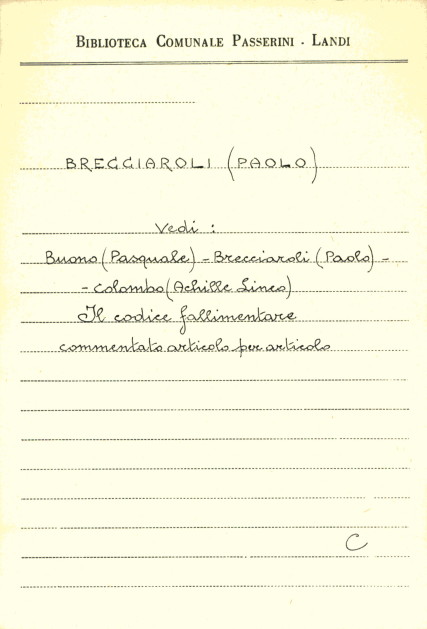 BIBLIOTECA COMUNALE PASSERINI - LANDI
BRECCIAROLI (PAOLO)
Vedi :
Buono (Pasquale) - Brecciaroli (Paolo) -
- Colombo (Achille Lineo)
Il codice fallimentare
commentato articolo per articolo
C